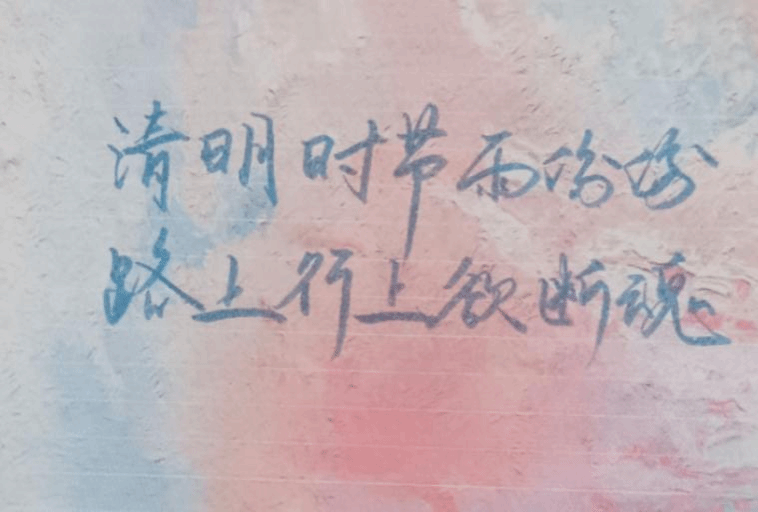 清明时节雨纷纷
路上行上欲断魂